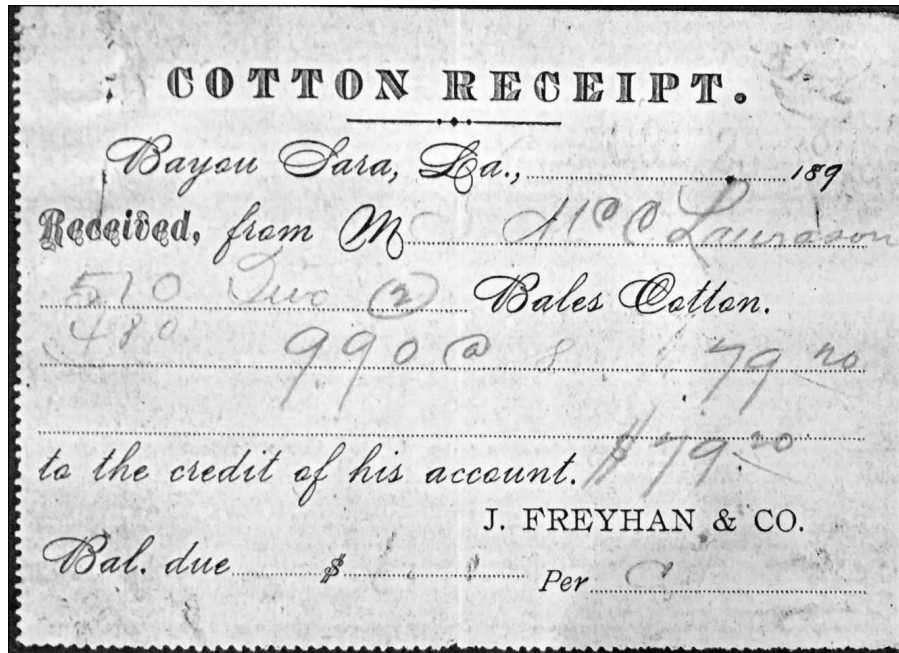 COTTON RECEIPT.
Bayou Sara, La., 189
Received, from M Laurason
510 Two (2) Bales Cotton.
480 990 @ 8 79 20
$79 20
to the credit of his account.
J. FREYHAN & CO.
Bal. due $ Per